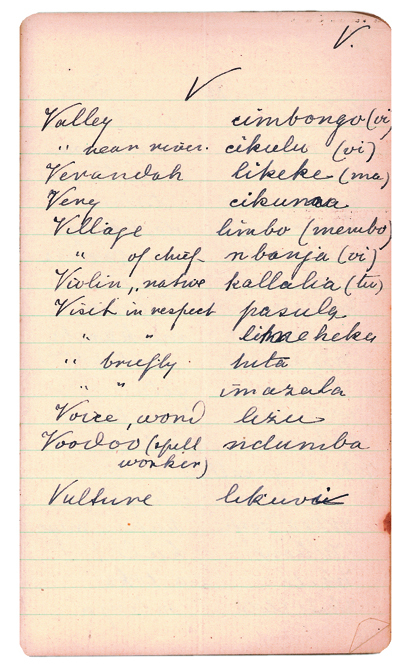 V.
V
Valley cimbongo (vi)
" near river. cikulu (vi)
Verandah likeke (ma)
Very cikuma
Village limbo (membo)
" of chief nbanja (vi)
Violin, native kallalia (tu)
Visit in respect pasula
" "
" briefly. tuta
" " imazala
Voice, word lizu
Voodoo (spell ndumba
worker)
Vulture likuvi